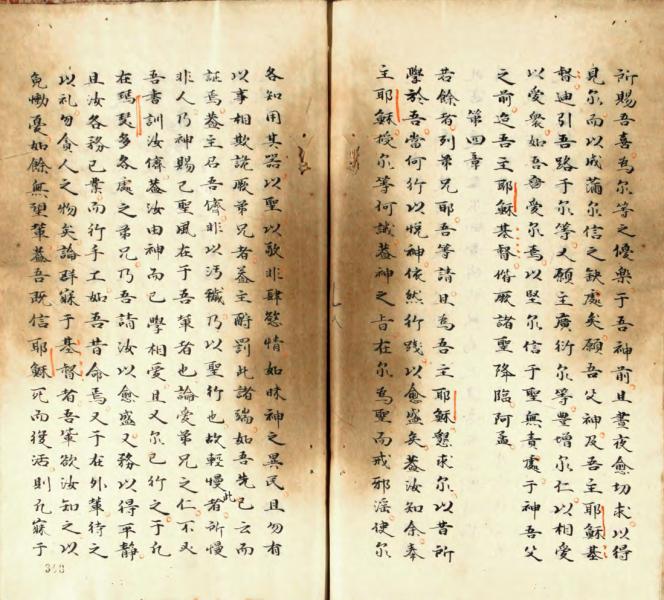 所賜吾喜為尔等之優樂于吾神前且晝夜愈切求以得
見尔而以成滿尔信之缺處矣願吾父神及吾主耶穌基
督迪引吾路于尔等又願主廣衍尔等豊增尔仁以相愛
以愛衆如吾愛尔焉以堅尔信于聖無責處于神吾父
之前迨吾主耶穌基督偕厥諸聖降臨阿孟
第四章
若餘者列弟兄耶吾等請且為吾主耶穌懇求尔以昔所
學於吾當何行以悅神依然行踐以愈盛矣葢汝知余奉
主耶穌授尔等何誡葢神之旨在尔為聖而戒邪淫使尔
各知用其器以聖以敬非肆慾情如昧神之異民且勿有
以事相欺詭厥弟兄者葢主爵罰此諸端如吾先已云而
証焉葢主召吾儕非以汚穢乃以聖行也故輕慢者此所慢
非人乃神賜己聖風在于吾軰者也論愛弟兄之仁不必
吾書訓汝儕葢汝由神而已學相愛且又尔已行之于凡
在瑪多各處之弟兄乃吾請汝以愈盛又務以得平靜
且汝各務己業而行手工如吾昔命焉又于在外軰待之
以礼勿貪人之物矣論群寐于基督者吾軰欲汝知之以
免慟憂如餘無望軰葢吾既信耶穌死而復活則凡寐于
348